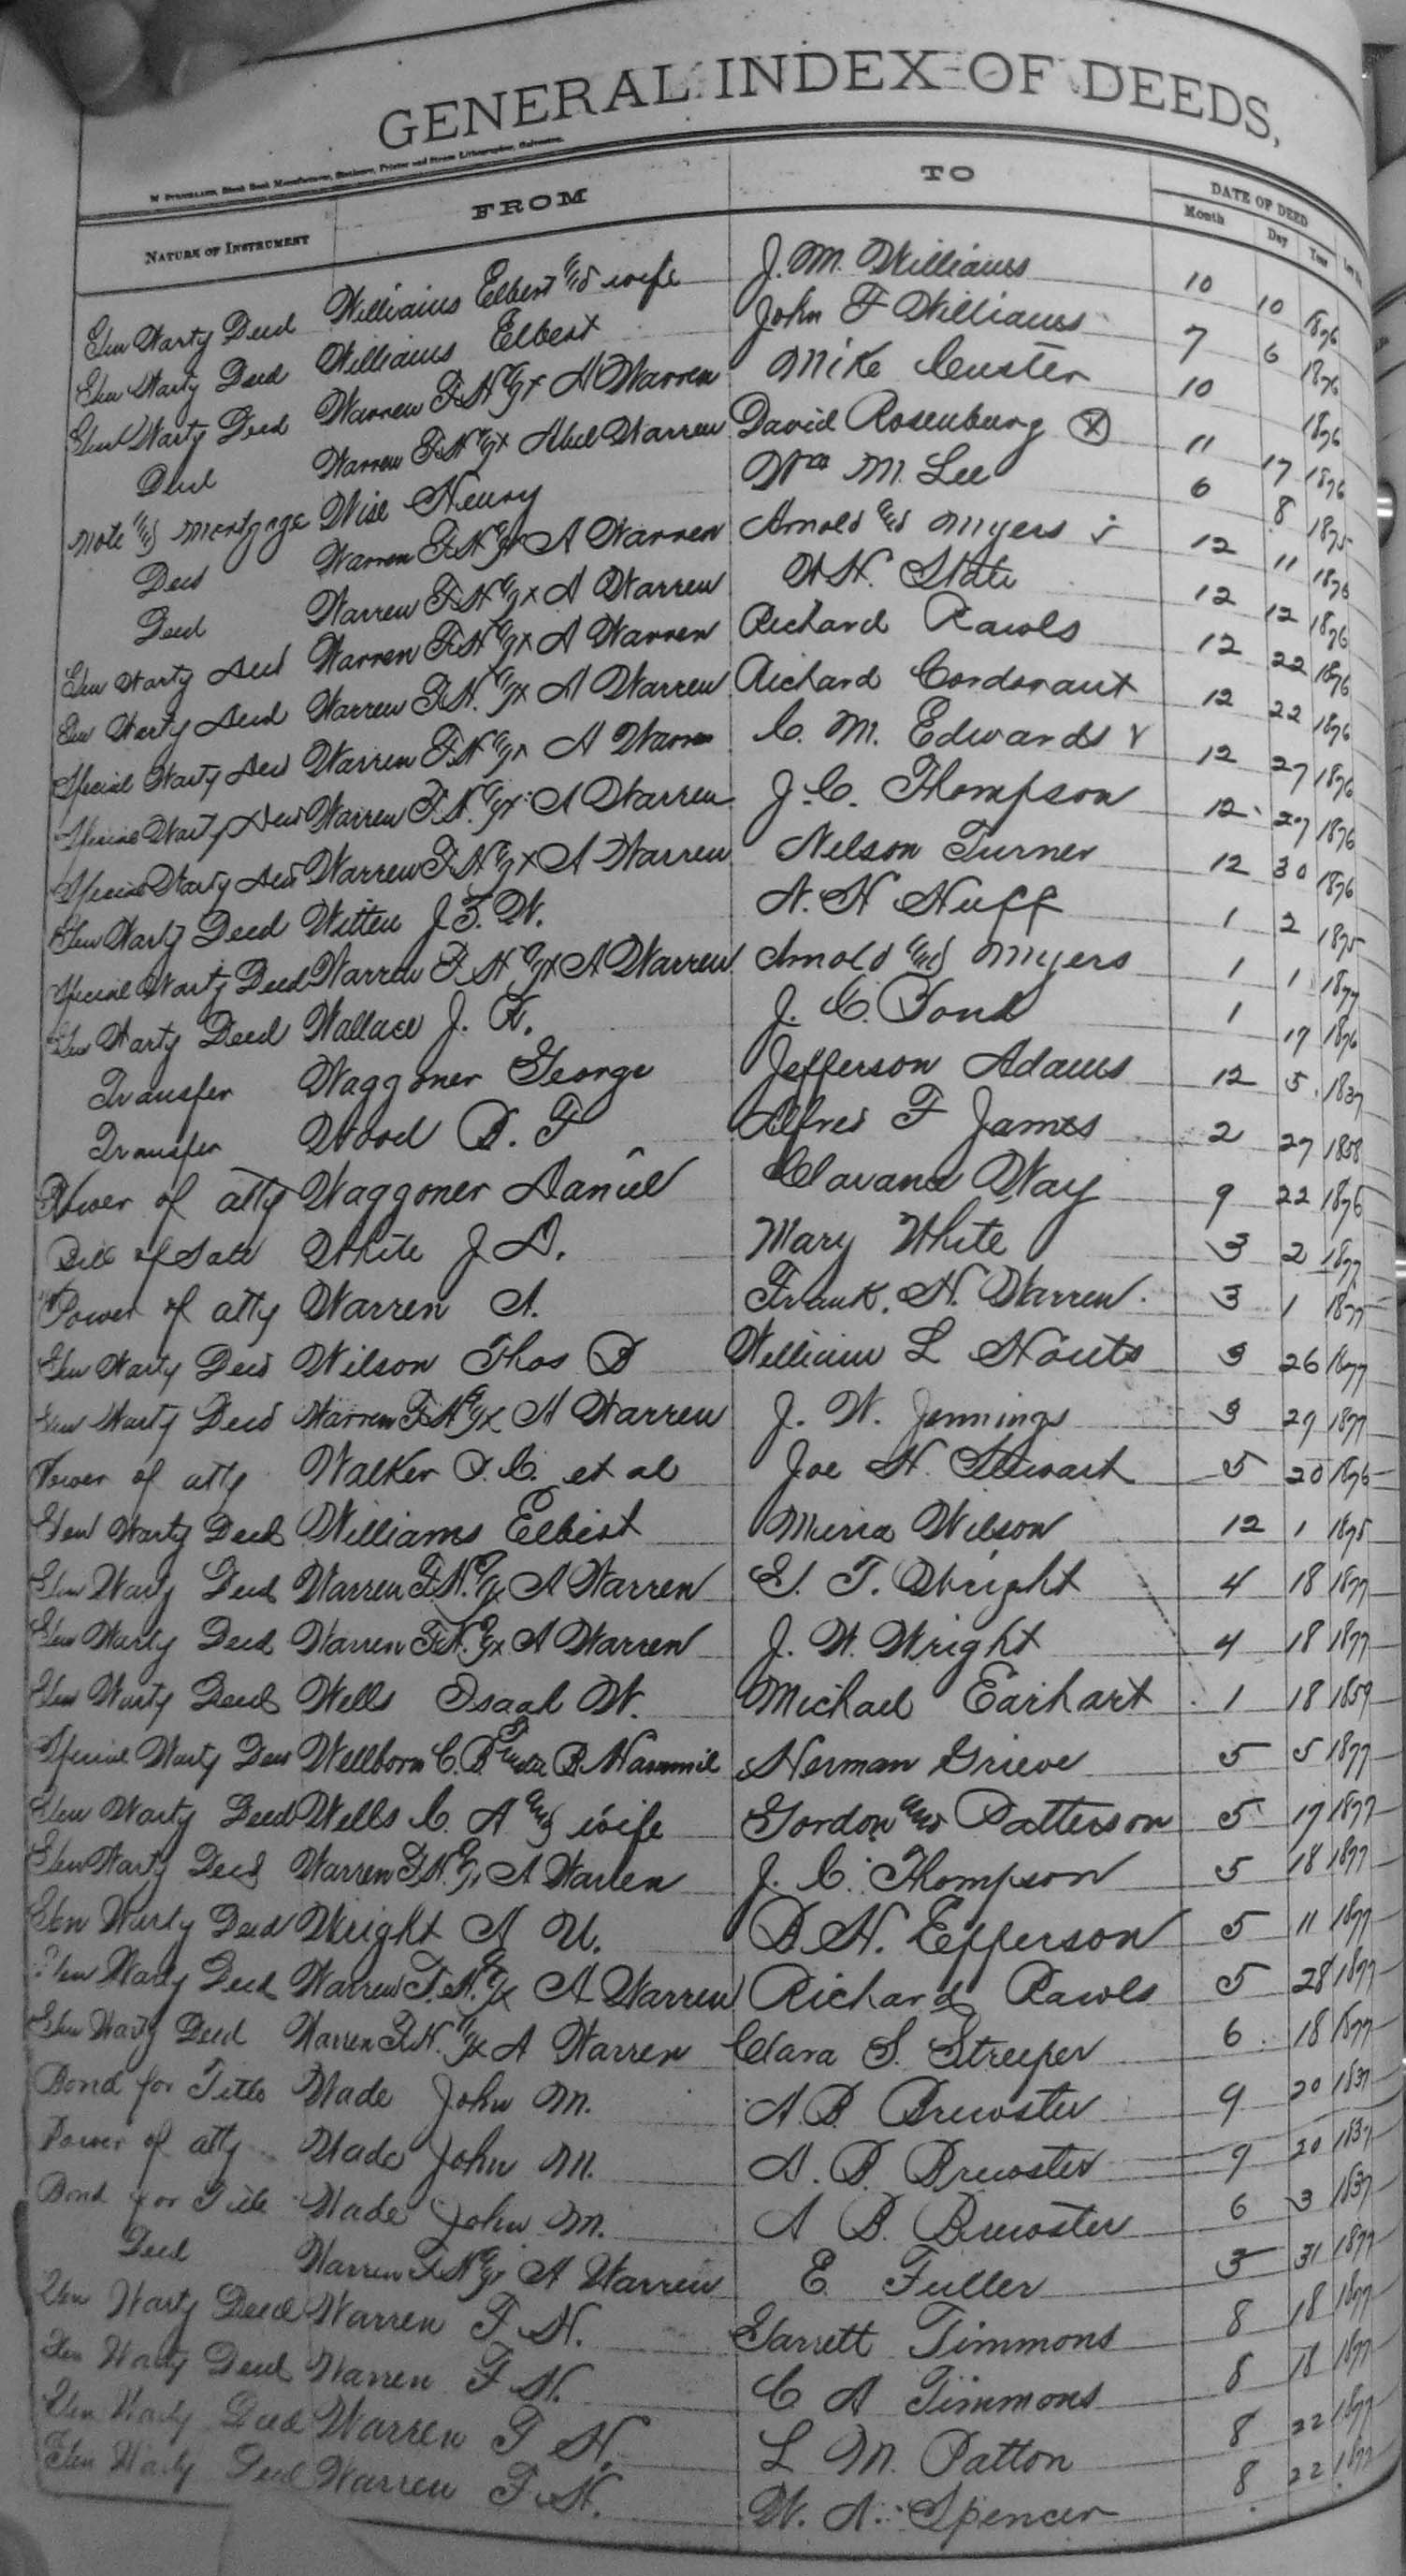 GENERAL INDEX OF DEEDS,
NATURE OF INSTRUMENT FROM TO DATE OF DEED
Month Day Year
Gen Warty Deed Williams Elbert and wife J. M. Williams 10 10 1876
Gen Warty Deed Williams Elbert John F Williams 7 6 1876
Gen Warty Deed Warren F. H Ex A Warren Mike Custer 10 1876
Deed Warren F. H Ex Abel Warren David Rosenburg X 11 17 1876
Note and Mortgage Wise Henry Wm M. Lee 6 8 1875
Deed Warren F. H Ex A Warren Arnold and Myers 12 11 1876
Deed Warren F. H Ex A Warren H. State 12 12 1876
Gen Warty Deed Warren F. H Ex A Warren Richard Rawls 12 22 1876
Gen Warty Deed Warren F. H. Ex A Warren Richard 12 22 1876
Special Warty Deed Warren F. H Ex A Warren C. M. Edwards 12 27 1876
Special Warty Deed Warren F. H. Ex A Warren J. C. Thompson 12 27 1876
Special Warty Deed Warren F. H Ex A Warren Nelson Turner 12 30 1876
Gen Warty Deed Witten J. F. W. N. H Huff 1 2 1875
Special Warty Deed Warren F. H Ex A Warren Arnold and Myers 1 1 1877
Gen Warty Deed Wallace J. J. C. 1 17 1876
Transfer Waggoner George Jefferson Adams 12 5 1837
Transfer Wood B. F Alfred F James 2 27 1858
Power of atty Waggoner Daniel Way 9 22 1876
Bill of Sale White J D. Mary White 3 2 1877
Power of atty Warren A. Frank. H. Warren 3 1 1877
Gen Warty Deed Wilson Thos B William L Houts 3 26 1877
Gen Warty Deed Warren F. H Ex A Warren J. W. Jennings 3 29 1877
Power of atty Walker et al Joe H. Stewart 5 20 1876
Gen Warty Deed Williams Elbert Wilson 12 1 1875
Gen Warty Deed Warren F. H. Ex A Warren E. T. Wright 4 18 1877
Gen Warty Deed Warren F. H. Ex A Warren J. W. Wright 4 18 1877
Gen Warty Deed Wells Isaah W. Michael Earhart 1 18 1859
Special Warty Deed Wellborn C. B. Herman Grieve 5 5 1877
Gen Warty Deed Wells C. A and wife Gordon and Patterson 5 17 1877
Gen Warty Deed Warren F. H. Ex A Warren J. C. Thompson 5 18 1877
Gen Warty Deed Wright A U. B. H. Epperson 5 11 1877
Gen Warty Deed Warren F. H. Ex A Warren Richard Rawls 5 28 1877
Gen Warty Deed Warren F. H. Ex A Warren Clara S. Streeper 6 18 1877
Bond for Title Wade John M. A. B. Brewster 9 20 1837
Power of atty Wade John M. A. B. Brewster 9 20 1837
Bond for Title Wade John M. A B. Brewster 6 3 1837
Deed Warren F. H Ex A Warren E. Fuller 3 31 1877
Gen Warty Deed Warren F. H. Garrett Timmons 8 18 1877
Gen Warty Deed Warren F. H. C A Timmons 8 18 1877
Gen Warty Deed Warren F H. L M. Patton 8 22 1877
Gen Warty Deed Warren F. H. W. A. Spencer 8 22 1877